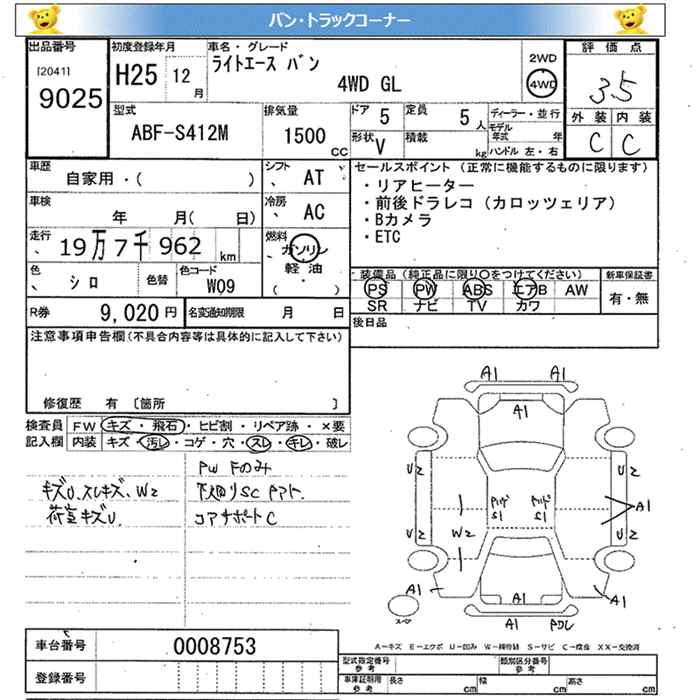 バン・トラックコーナー
出品番号
[2041]
9025
初度登録年月
H25 12月
車名・グレード
ライトエース バン
4WD GL
2WD
4WD
評価点
3.5
外装 内装
C C
型式
ABF-S412M
排気量
1500 CC
ドア 5
定員 5人
形状 V
積載 kg
ディーラー・並行
モデル年式 年
ハンドル 左・右
車歴
自家用・( )
シフト
、 AT
車検
年 月( 日)
冷房
、 AC
走行
、 19万7千962 km
燃料
ガソリン
軽油
( )
色
、 シロ
色替
色コード
W09
セールスポイント (正常に機能するものに限ります)
・リアヒーター
・前後ドラレコ (カロッツェリア)
・Bカメラ
・ETC
装備品 (純正品に限り○をつけてください)
PS PW ABS エアB AW
SR ナビ TV カワ
新車保証書
有・無
R券 9,020円
名変通知期限 月 日
後日品
注意事項申告欄(不具合内容等は具体的に記入して下さい)
修復歴 有 [箇所 ]
検査員記入欄
FW キズ・飛石・ヒビ割・リペア跡・×要
内装 キズ・汚レ・コゲ・穴・スレ・キレ・破レ
PW Fのみ
キズU、スレキズ、W2
下廻りSC アト
荷室キズU
コアサポートC
A1
A1
A1
U2
U2
A1
S1
S1
W2
U2
U2
A1
A1
A1
A1
スペア
A―キズ E―エクボ U―凹み W―補修跡 S―サビ C―腐食 XX―交換済
車台番号 0008753
登録番号
型式指定番号 参考
類別区分番号 参考
車庫証明用 参考
長さ cm
幅 cm
高さ cm